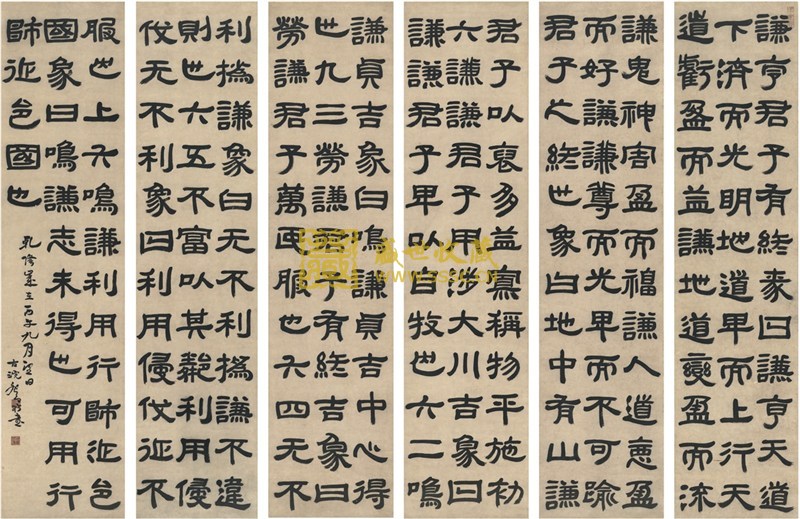 謙亨君子有終彖曰謙亨天道
下濟而光明地道卑而上行天
道虧盈而益謙地道變盈而流
謙鬼神害盈而福謙人道惡盈
而好謙謙尊而光卑而不可踰
君子之終也象曰地中有山謙
君子以裒多益寡稱物平施初
六謙謙君子用涉大川吉象曰
謙謙君子卑以自牧也六二鳴
謙貞吉象曰鳴謙貞吉中心得
也九三勞謙君子有終吉象曰
勞謙君子萬民服也六四无不
利撝謙象曰无不利撝謙不違
則也六五不富以其鄰利用侵
伐无不利象曰利用侵伐征不
服也上六鳴謙利用行師征邑
國象曰鳴謙志未得也可用行
師征邑國也
乾隆歲在丙午九月望日
古浣
盛世收藏